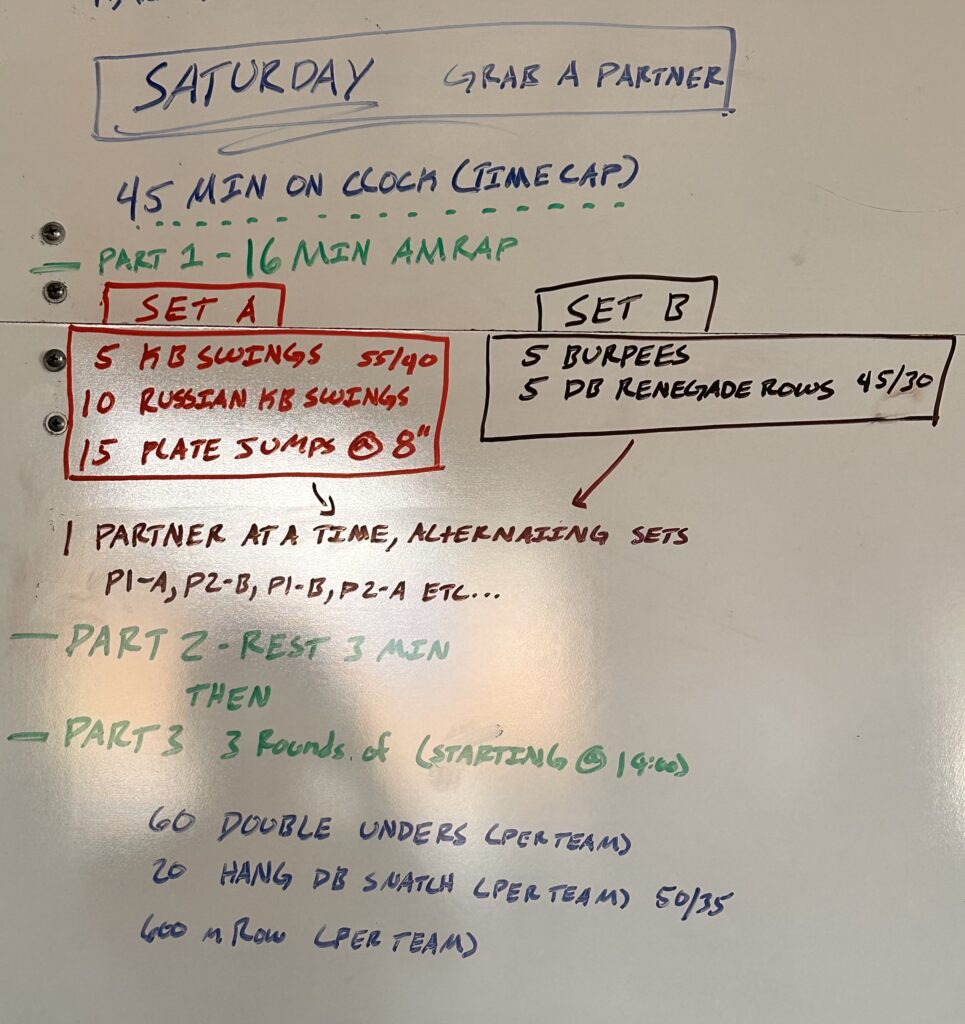 SATURDAY GRAB A PARTNER
45 MIN ON CLOCK (TIME CAP)
- PART 1 - 16 MIN AMRAP
SET A
5 KB SWINGS 55/40
10 RUSSIAN KB SWINGS
15 PLATE JUMPS @ 8"
SET B
5 BURPEES
5 DB RENEGADE ROWS 45/30
1 PARTNER AT A TIME, ALTERNATING SETS
P1-A, P2-B, P1-B, P2-A ETC...
- PART 2 - REST 3 MIN
THEN
- PART 3 3 Rounds of (STARTING @ 19:00)
60 DOUBLE UNDERS (PER TEAM)
20 HANG DB SNATCH (PER TEAM) 50/35
600 m Row (PER TEAM)